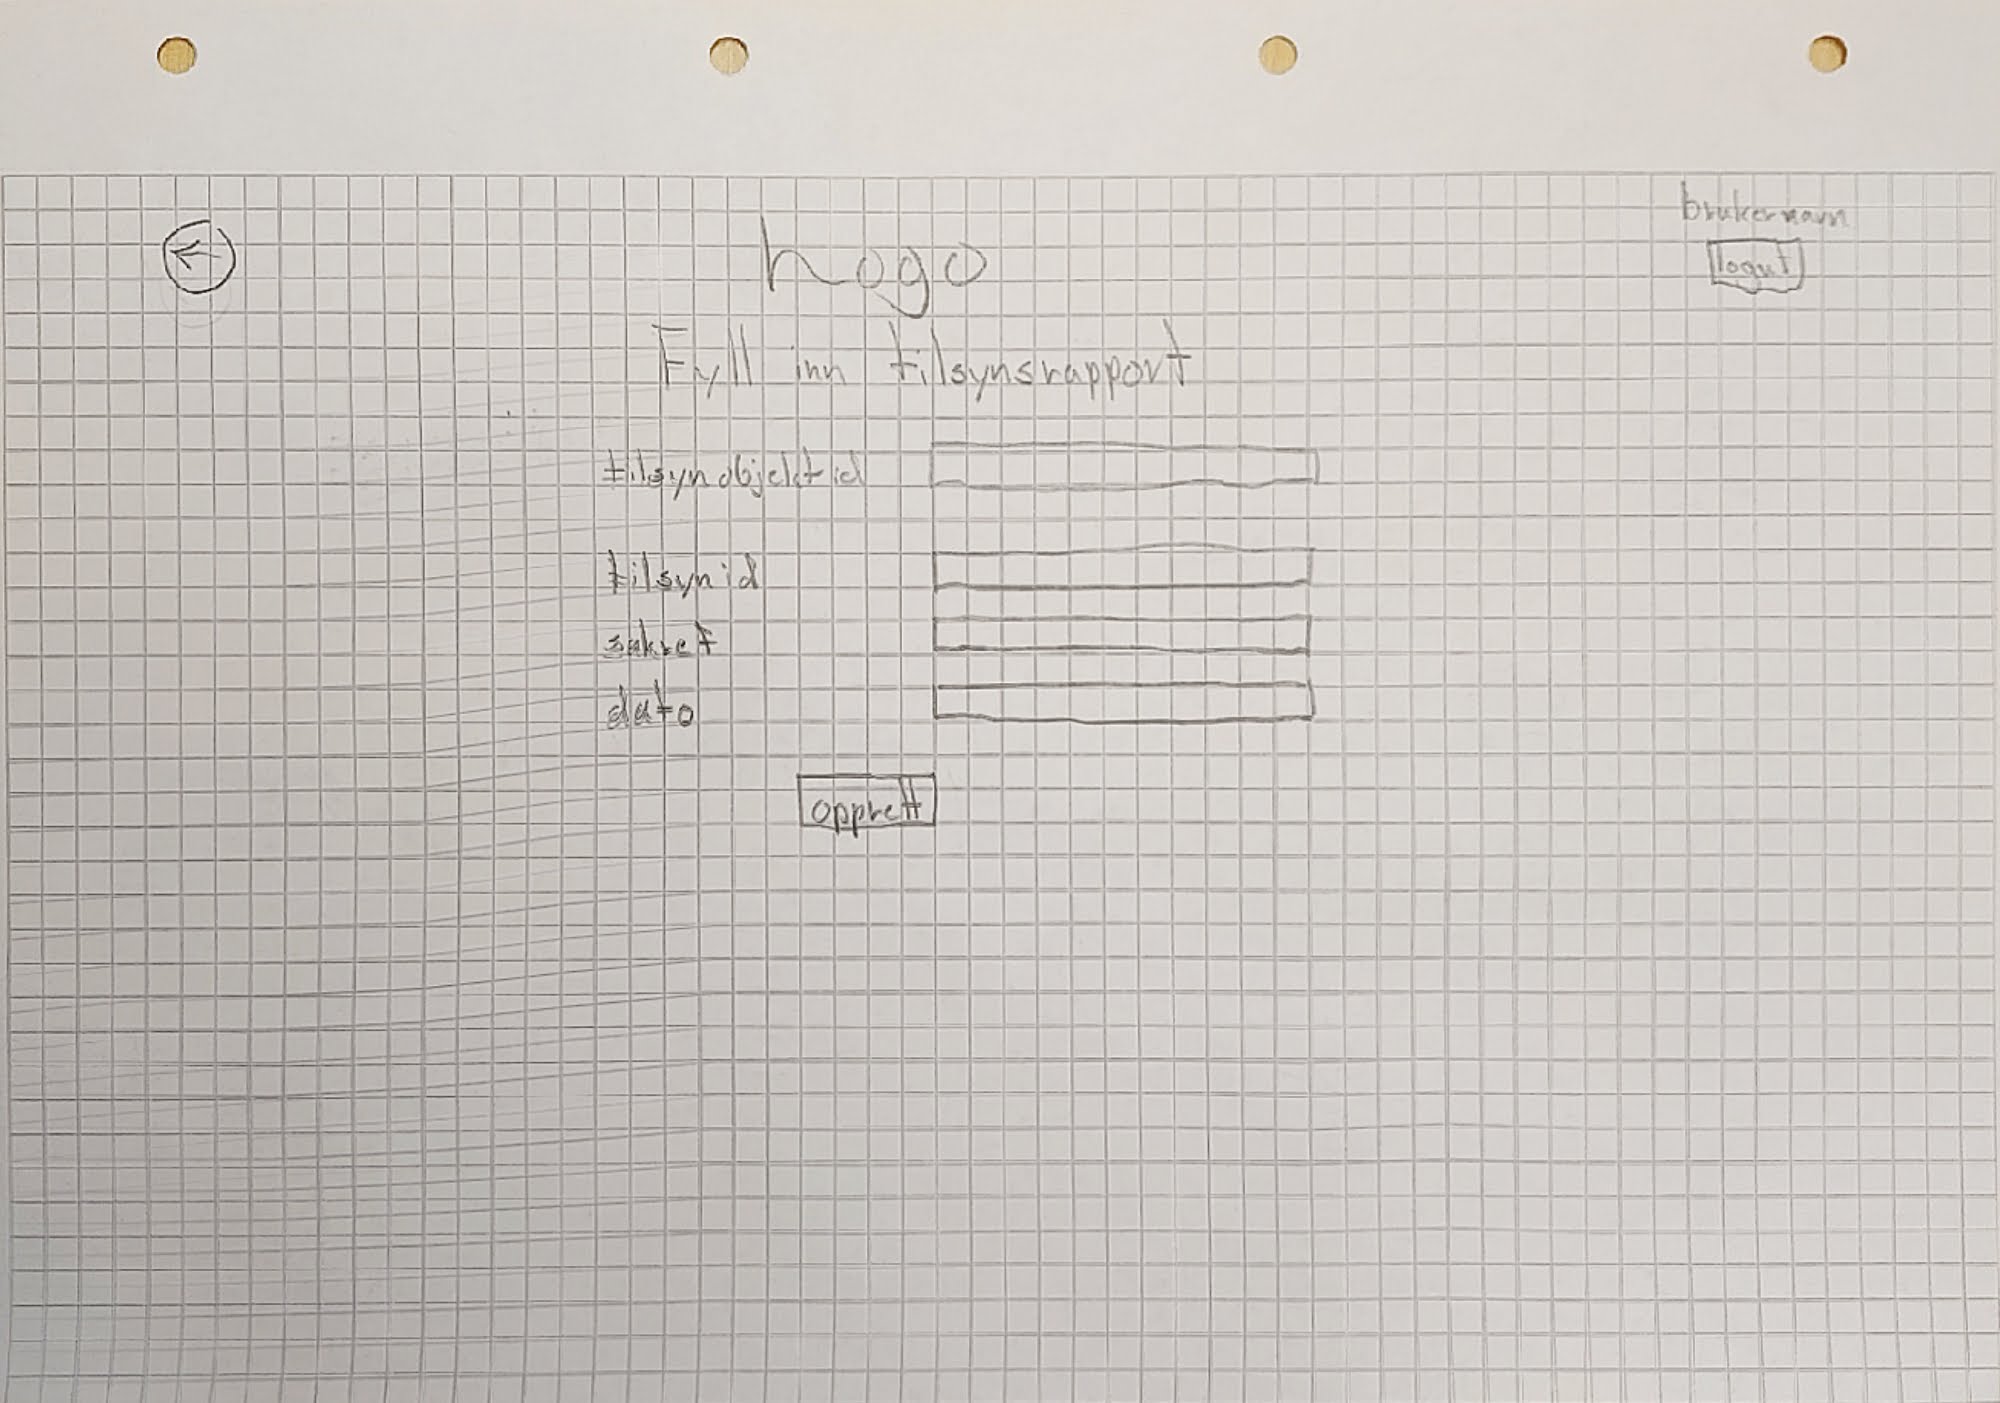 brukernavn
Logo
logut
Fyll inn tilsynsrapport
tilsynobjektid
tilsynid
sakref
dato
opprett